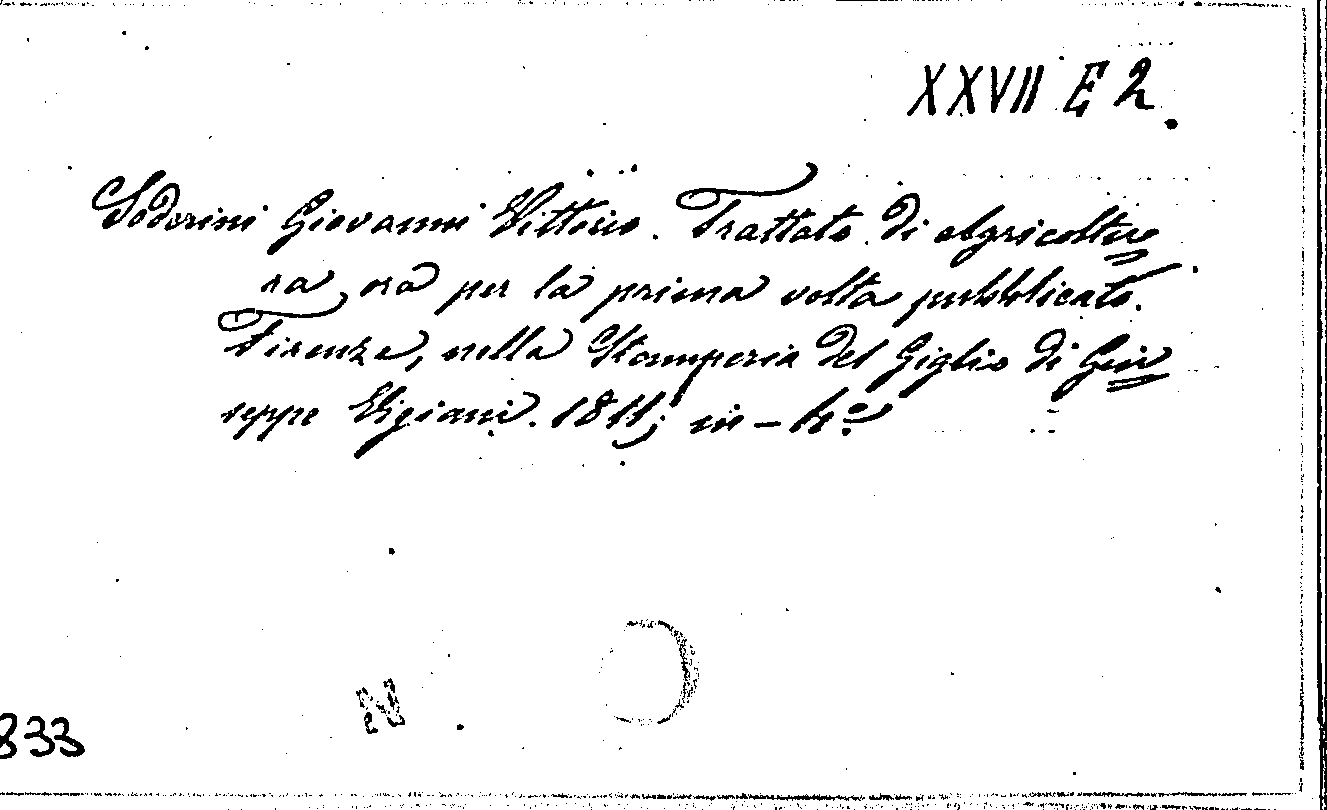 XXVII E 2.
Soderini Giovanni Vittorio. Trattato di agricoltu=
ra, ora per la prima volta pubblicato.
Firenze, nella Stamperia del Giglio di Giu=
seppe Vigiani. 1811; in-4.º
N
833